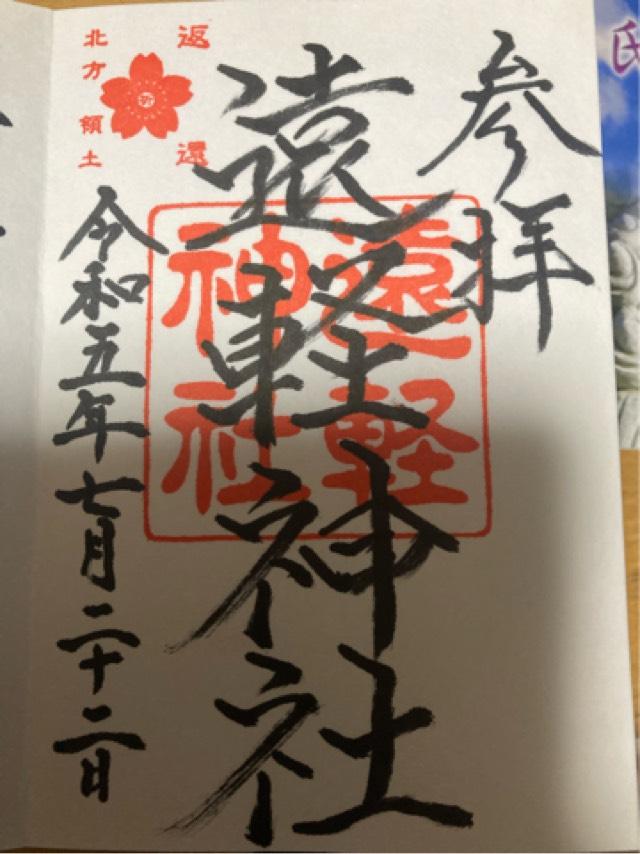 参拝
遠軽神社
遠軽
神社
返還
北方領土
祈
令和五年七月二十二日
氏